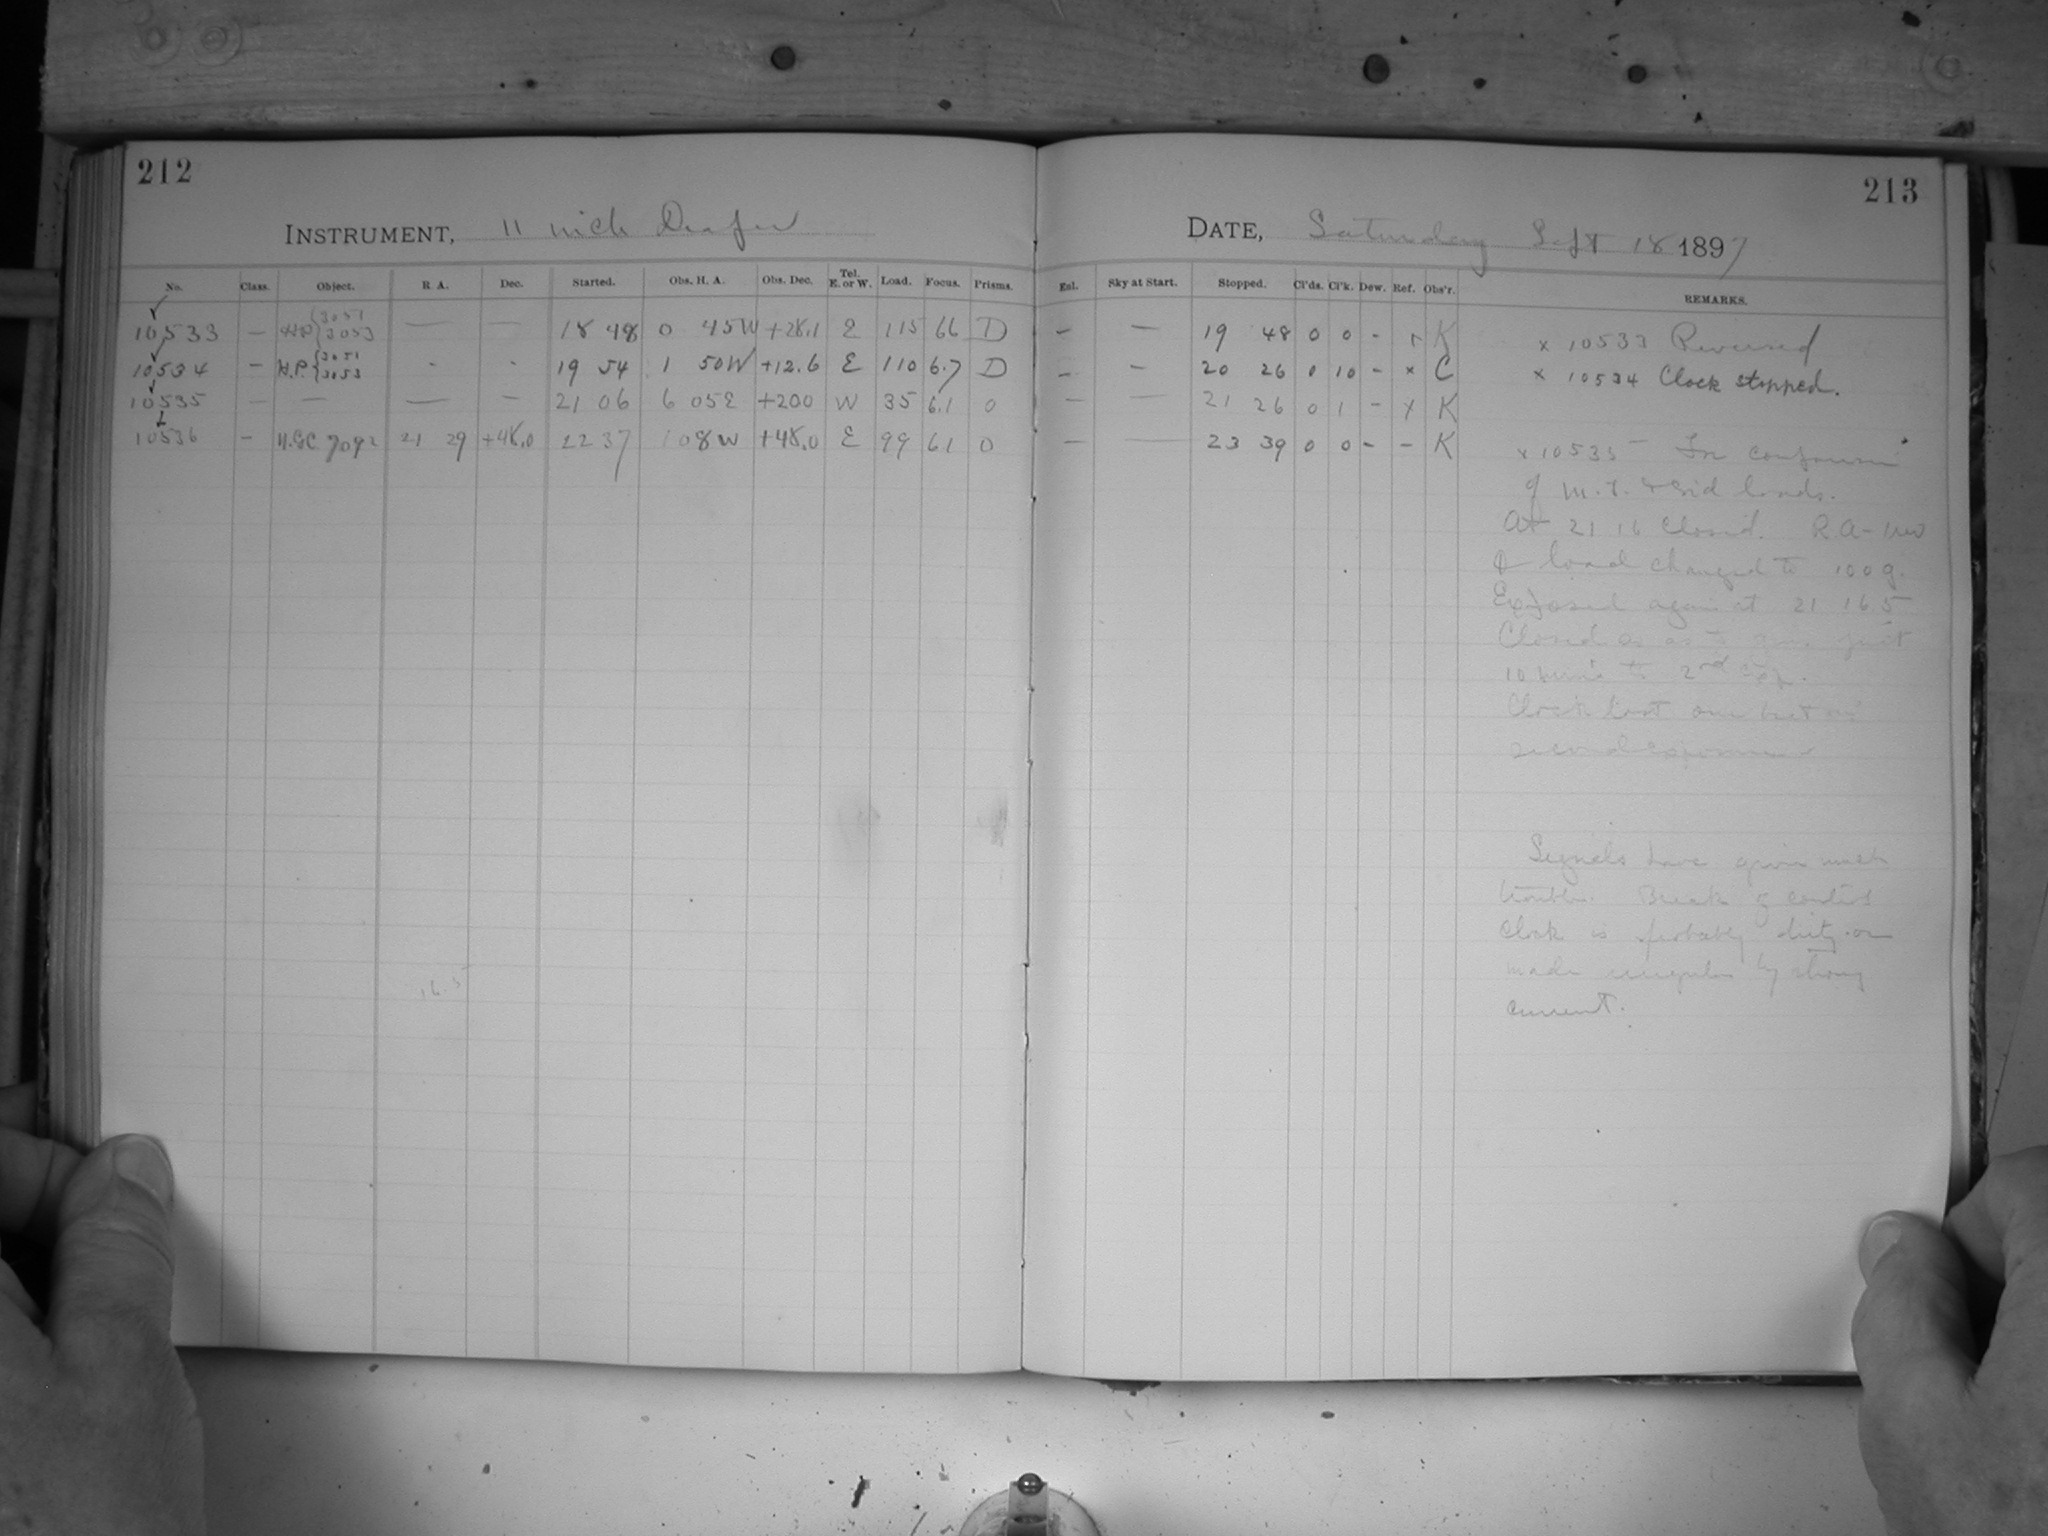 212
213
INSTRUMENT, 11 inch Draper
DATE, Saturday Sept 18 1897
No. Class. Object. R A. Dec. Started. Obs. H. A. Obs. Dec. Tel. E. or W. Load. Focus. Prisms. Enl. Sky at Start. Stopped. Cl'ds. Cl'k. Dew. Ref. Obs'r. REMARKS.
10533 — H.P. {3051 3053 — — 18 48 0 45W +28.1 E 115 66 D — — 19 48 0 0 - x K x 10533 Reversed
10534 — H.P. {3051 3053 - - 19 54 1 50W +12.6 E 110 6.7 D — — 20 26 0 10 - x C x 10534 Clock stopped.
10535 — — — — 21 06 6 05E +200 W 35 6.1 0 — — 21 26 0 1 - x K
10536 — H.GC 7092 21 29 +48.0 22 37 1 08W +48.0 E 99 61 0 — — 23 39 0 0 - - K
x 10535 — For comparison
of M.T. & Sid loads.
At 21 16 closed. R.A.
& load changed to 100 g.
Exposed again at 21 16.5
Closed so as to give just
10 min to 2nd exp.
Clock lost one beat on
second exposure
Signals have given much
trouble. Break of control
clock is probably dirty or
made irregular by strong
current.
16.5